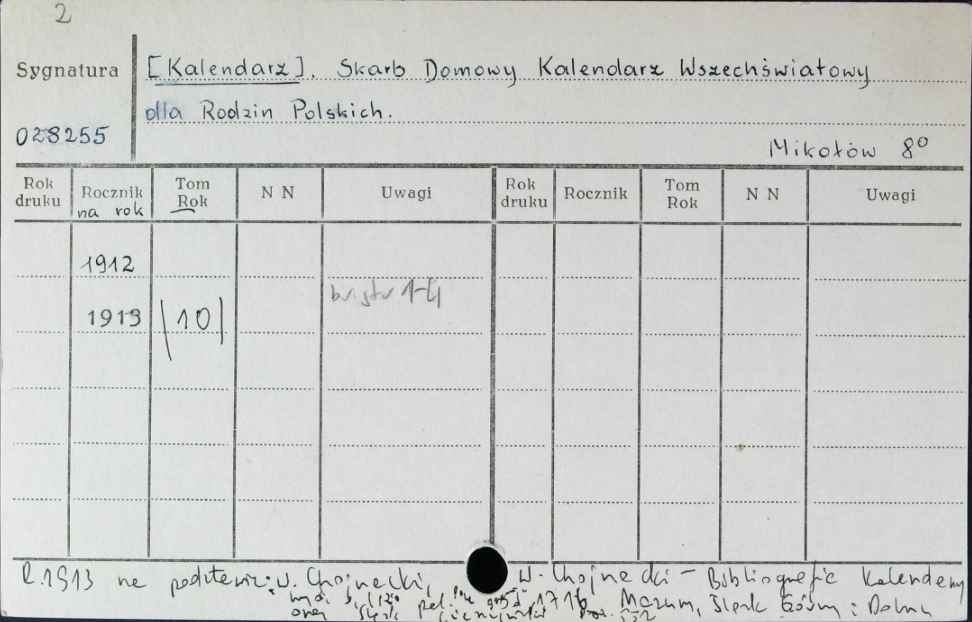 2
Sygnatura [Kalendarz]. Skarb Domowy Kalendarz Wszechświatowy
dla Rodzin Polskich.
028255
Mikołów 8°
Rok druku Rocznik na rok Tom Rok N N Uwagi Rok druku Rocznik Tom Rok N N Uwagi
1912
br. str 1-4
1913 (10)
R. 1913 na podstawie: W. Chojnecki, W. Chojnecki - Bibliografie Kalendarzy
Mazum, Śląsk Górny i Dolny